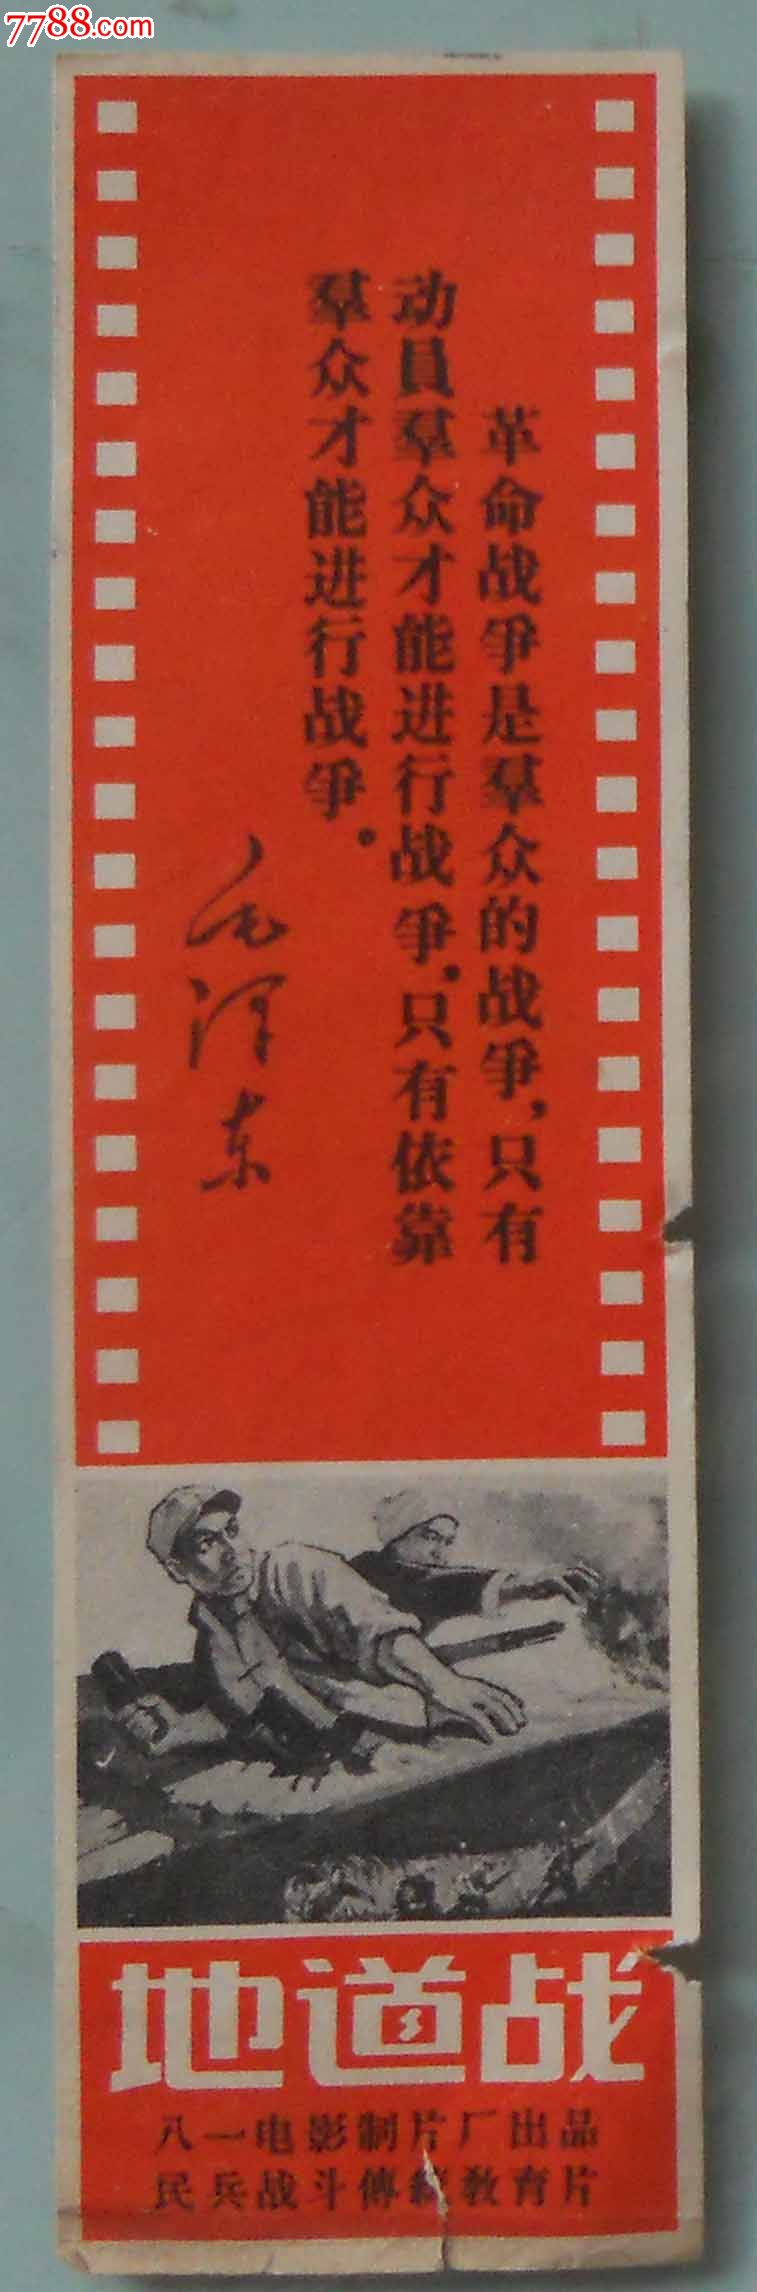 7788.com
革命战爭是羣众的战爭，只有
动員羣众才能进行战爭。只有依靠
羣众才能进行战爭。
毛泽东
地道战
八一电影制片厂出品
民兵战斗傳統教育片